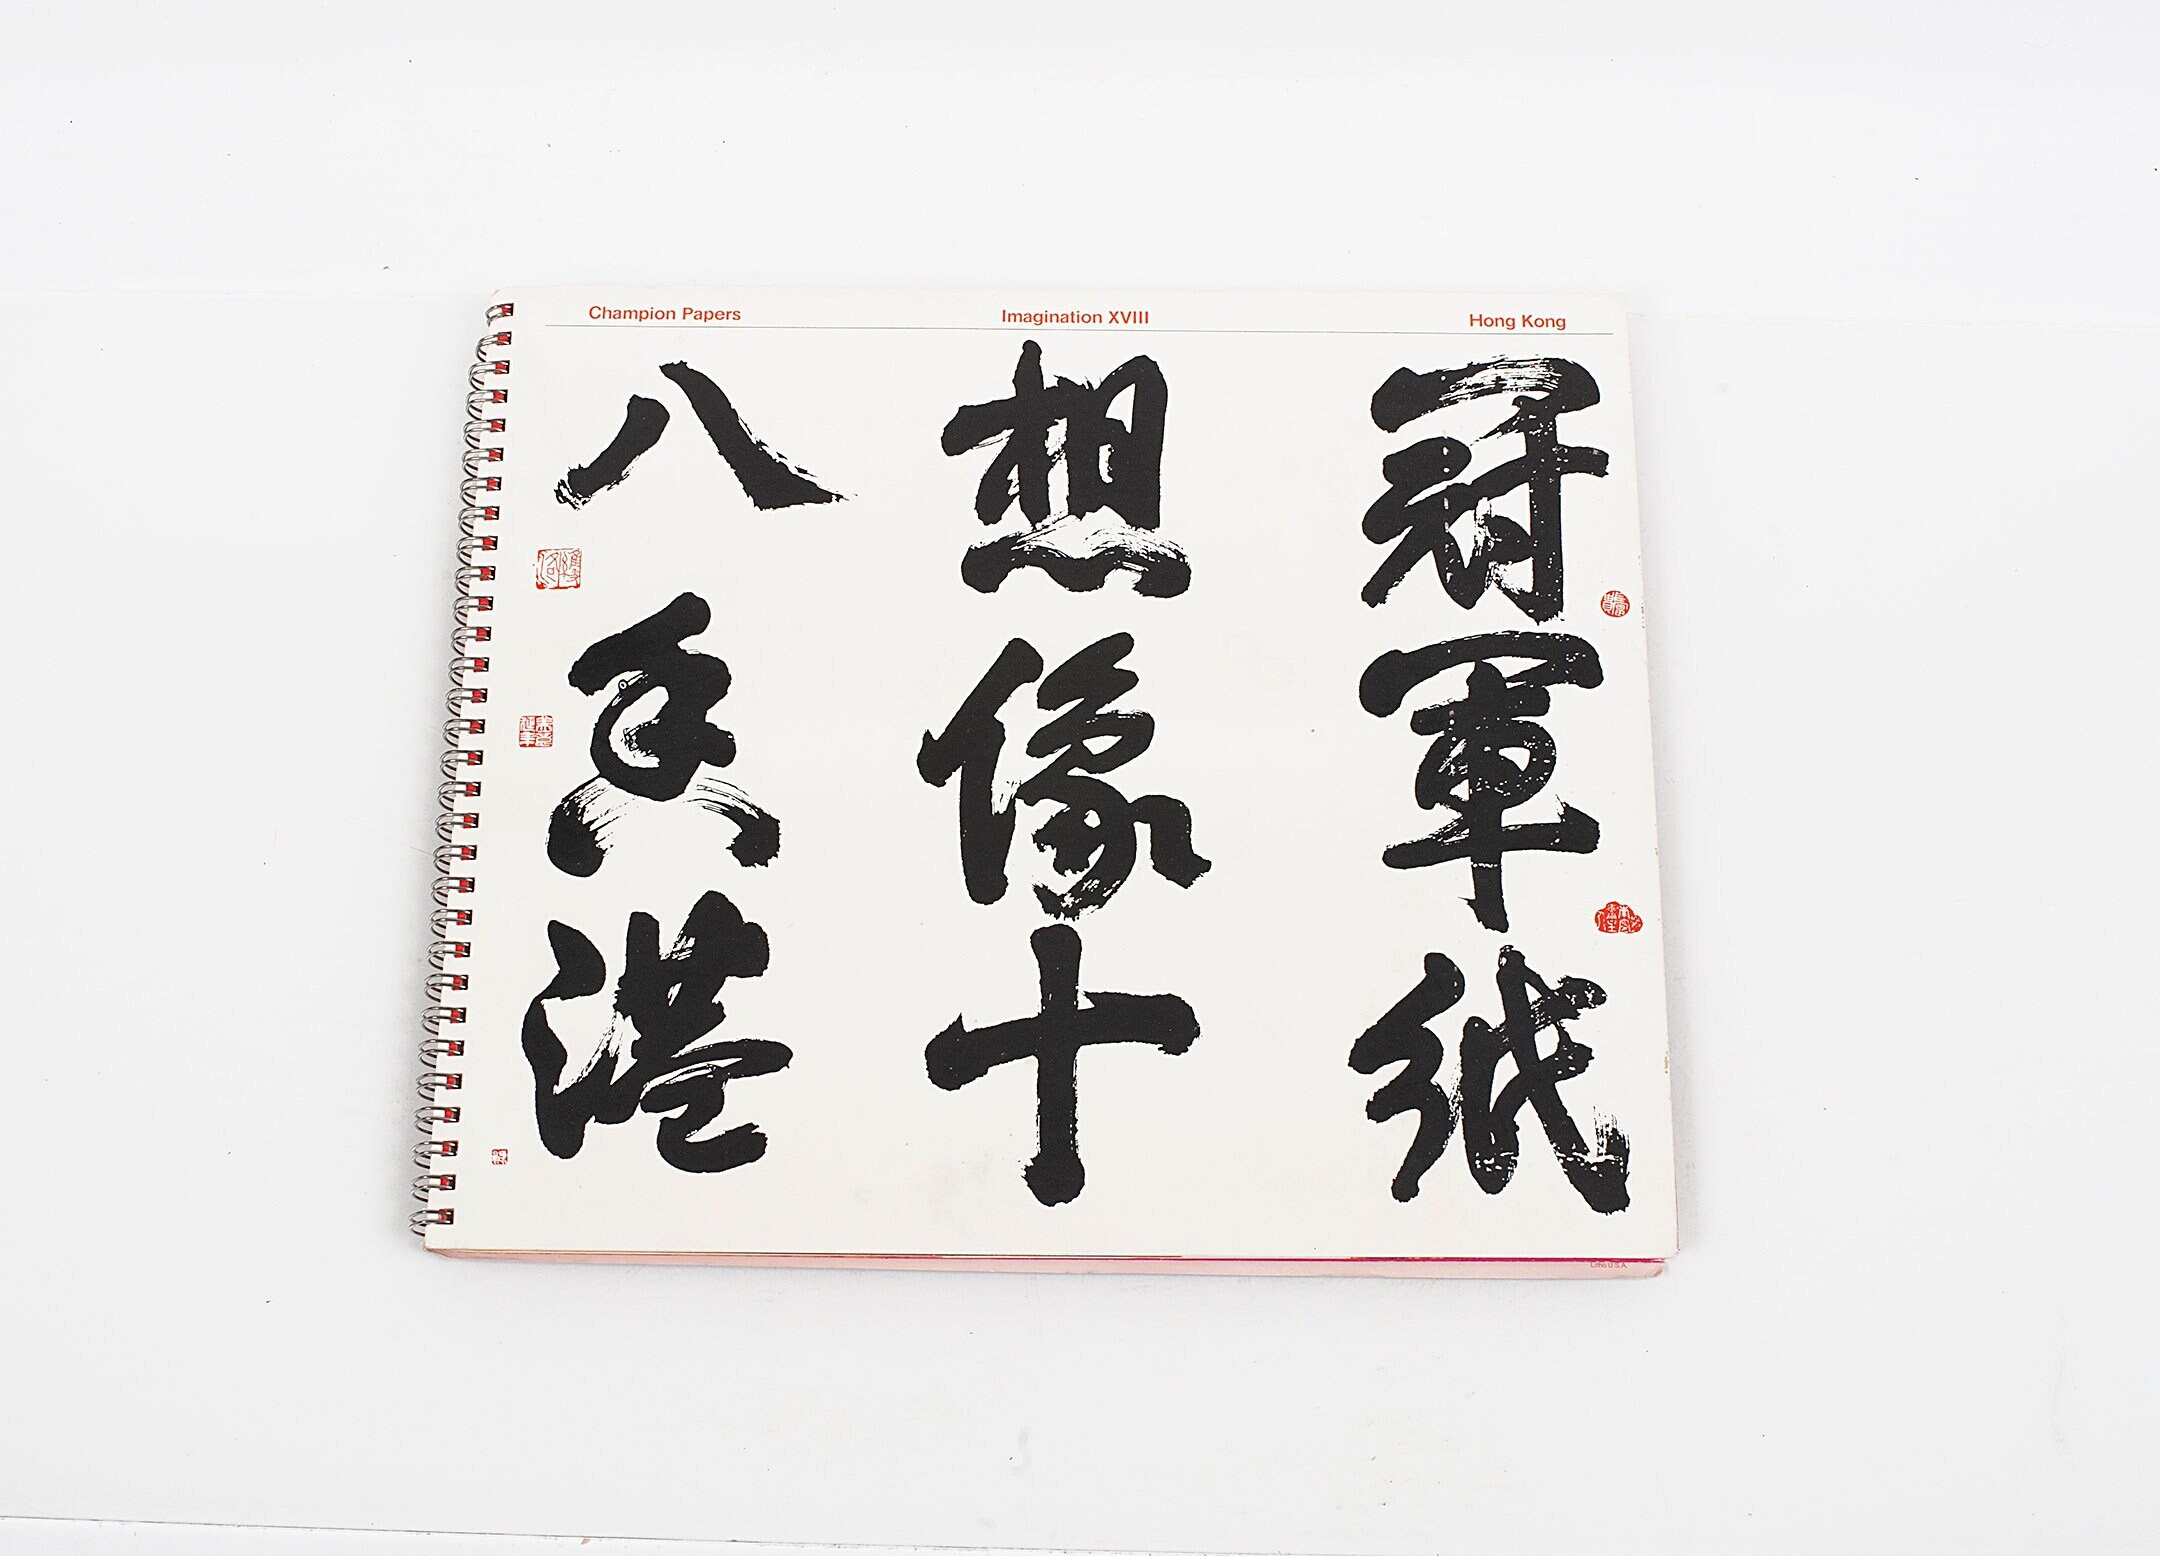 Champion Papers
Imagination XVIII
Hong Kong
冠軍紙
想像十
八香港
Litho U.S.A.